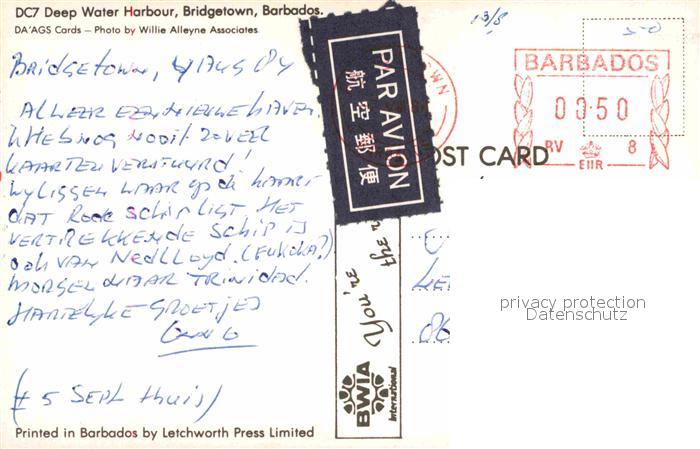 DC7 Deep Water Harbour, Bridgetown, Barbados.
DA'AGS Cards – Photo by Willie Alleyne Associates
Bridgetown, 4 Aug 84
ALWEER EEN NIEUWE HAVEN.
HEB NOG NOOIT ZOVEEL
KAARTEN VERSTUURD!
Wy LIGGEN WAAR op de KAART
DAT Rode SCHIP LIGT HET
VERTREKKENDE SCHIP IS
ook VAN NedLLoyd.
MORGEN NAAR TRINIDAD.
HARTELYKE GROETJES
(± 5 SEPT thuis)
Printed in Barbados by Letchworth Press Limited
PAR AVION
航空郵便
POST CARD
BARBADOS
0050
RV 8
EIIR
You're
BWIA
International
privacy protection
Datenschutz